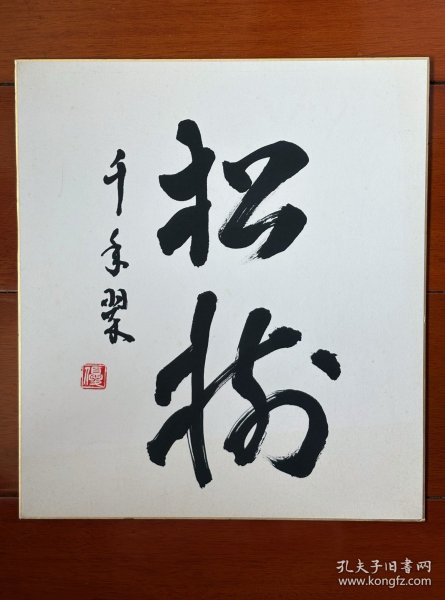 松樹
千年翠
優
孔夫子旧书网
www.kongfz.com